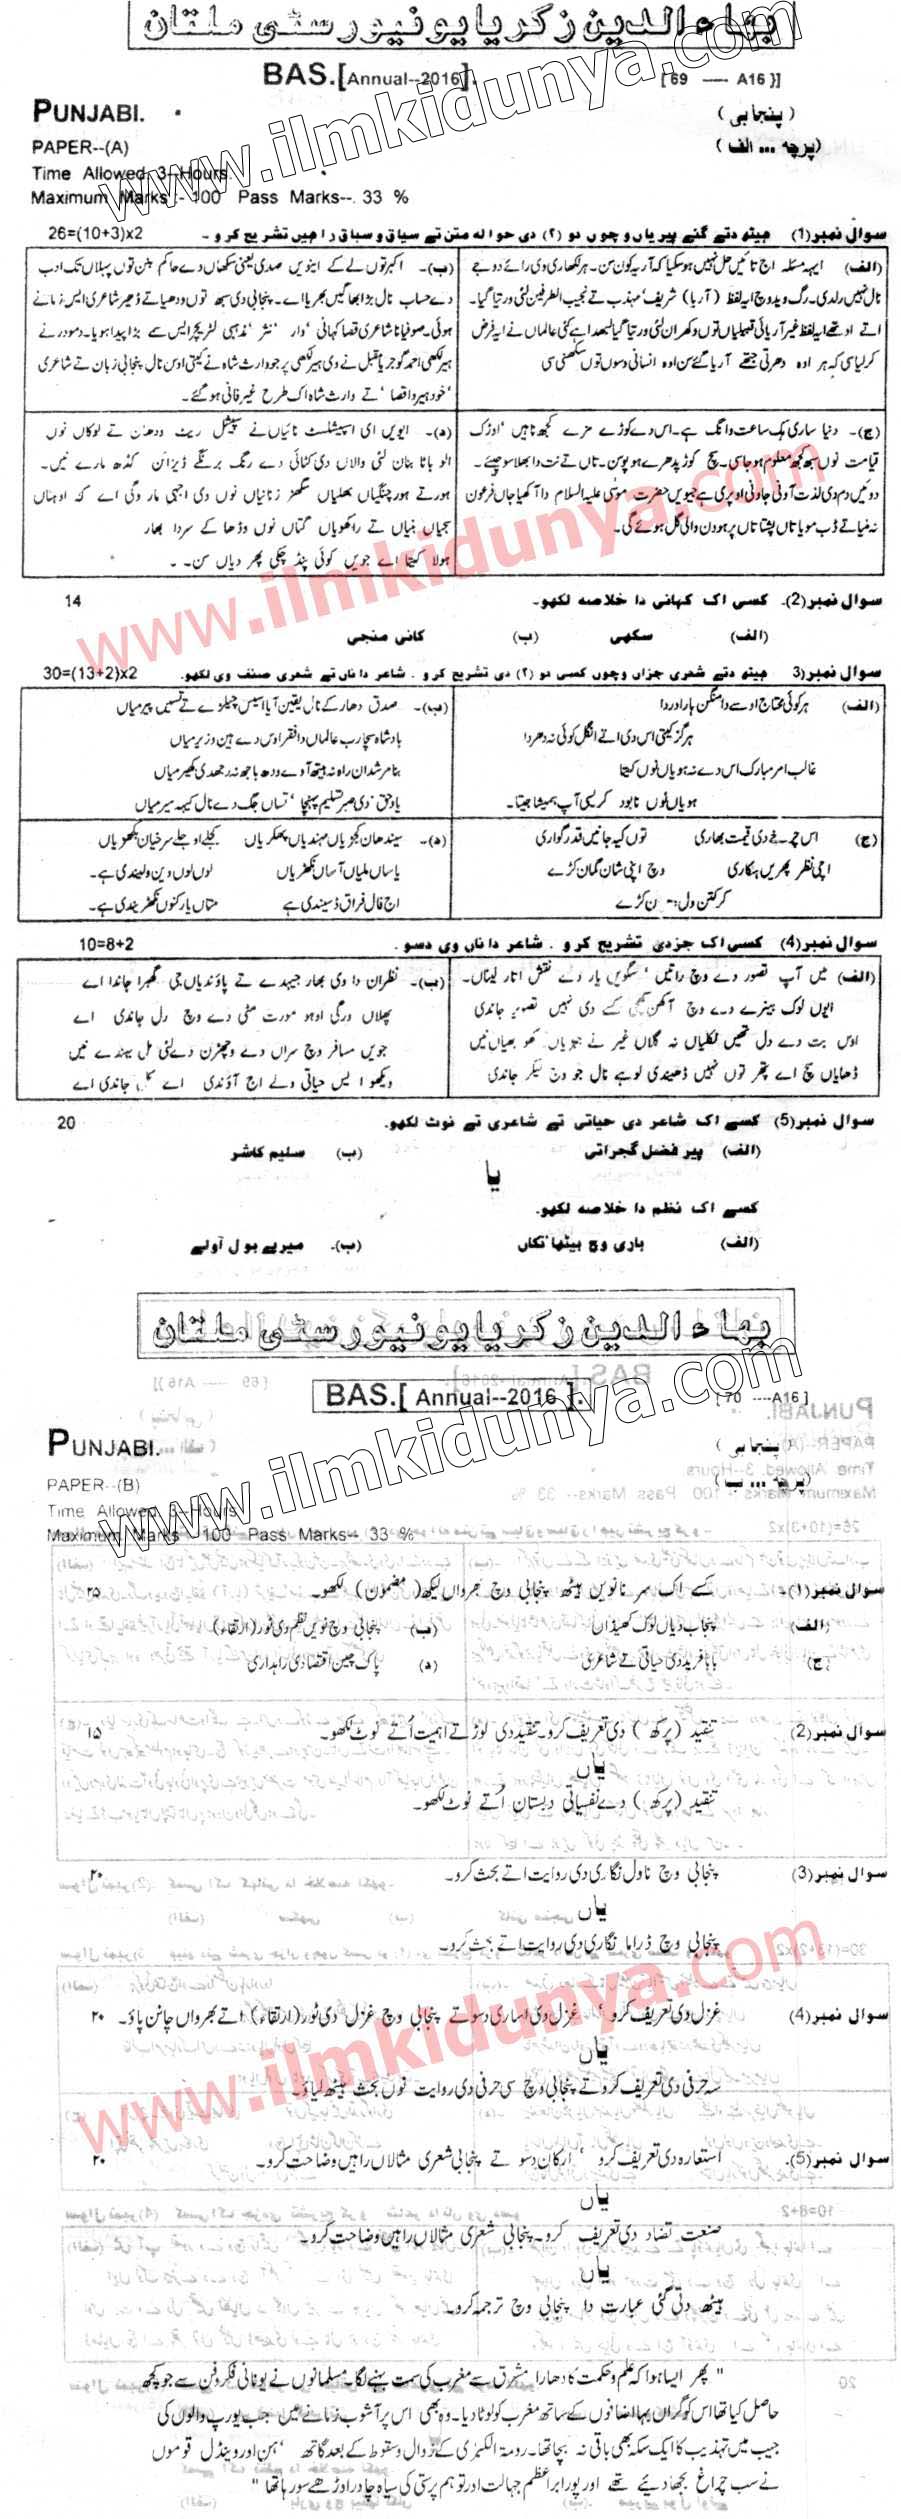 بہاءالدین زکریا یونیورسٹی ملتان
BAS.[Annual--2016].
[69 ---- A16}]
PUNJABI.
(پنجابی)
PAPER--(A)
(پرچہ ... الف)
Time Allowed 3--Hours.
Maximum Marks:- 100 Pass Marks-- 33 %
www.ilmkidunya.com
سوال نمبر(1) ہیٹھ دتے گئے پیریاں وچوں دو (۲) دی حوالہ متن تے سیاق و سباق راہیں تشریح کرو ۔ 26=(10+3)x2
(الف) ایہہ مسئلہ اج تائیں حل نہیں ہو سکیا کہ آریہ کون سن۔ ہر لکھاری دی رائے دوجے
نال نہیں رلدی۔ رگ وید وچ ایہ لفظ (آریا) شریف' مہذب تے نجیب الطرفین لئی ورتیا گیا۔
اتے اوتھے ایہ لفظ غیر آریائی قبیلیاں توں وکھران لئی ورتیا گیا لبھدا اے کئی عالماں نے ایہ فرض
کر لیا سی کہ ہر اوہ دھرتی جتھے آریا گئے سن اوہ انسانی وسوں توں سکھنی سی
(ب)۔ اکبر توں لے کے اینویں صدی یعنی سکھاں دے حاکم بنن توں پہلاں تک ادب
دے حساب نال بڑا بھاگیں بھریا اے۔ پنجابی دی سبھ توں ودھیا تے ڈھیر شاعری ایس زمانے
ہوئی۔ صوفیانا شاعری قصا کہانی 'وار' نثر' مذہبی لٹریچر ایس سے بڑا پیدا ہویا۔ دمودر نے
ہیر لکھی احمد گوجر یا مقبل نے وی ہیر لکھی پر جو وارث شاہ نے کیتی اوس نال پنجابی زبان تے شاعری
'خود ہیر دا قصا' تے وارث شاہ اک طرح غیر فانی ہو گئے۔
(ج)۔ دنیا ساری ہک ساعت وانگ ہے۔ اس دے کوڑے مزے کجھ ناہیں' اوڑک
قیامت نوں سبھ کجھ معلوم ہو جاسی۔ سچ کوڑ پدھرے ہو پوسن۔ تاں تے نت دا بھلا سوچیئے۔
دو تیں دم دی لذت آونی جاونی اوپری ہے جیویں حضرت موسیٰ علیہ السلام دا آکھیا جاں فرعون
نہ منیا تے ڈب مویا تاں پشتاں پر ہو دن والی گل ہوئے گی۔
(د)۔ ایویں ای اسپیشلسٹ نائیاں نے سپیشل ریٹ ودھن تے لوکاں نوں
الو باٹا بنان لئی والاں دی کٹائی دے رنگ برنگے ڈیزائن کڈھ مارے نیں۔
ہور تے ہور چنگیاں بھلیاں سگھڑ زنانیاں نوں وی اجہی مار وگی اے کہ اوہناں
سجیاں بنیاں تے راکھویاں گتاں نوں وڈھا کے سر دا بھار
ہولا کیتا اے جویں کوئی پنڈ چکی پھر دیاں سن۔
www.ilmkidunya.com
سوال نمبر(2)۔ کسی اک کہانی دا خلاصہ لکھو۔ 14
(الف) سکھی (ب) کانی منجی
سوال نمبر3 ہیٹھ دتے شعری جزاں وچوں کسی دو (۲) دی تشریح کرو ۔ شاعر داناں تے شعری صنف وی لکھو۔ 30=(13+2)x2
(الف) ہر کوئی محتاج اوسے دا منگن ہارا در دا
ہرگز کیتی اس دی اتے انگل کوئی نہ دھردا
غالب امر مبارک اس دے نہ ہویاں نوں کیتا
ہویاں نوں نابود کریسی آپ ہمیشا جیتا۔
(ب)۔ صدق دھار کے نال یقین آیا اسیں چیلڑے تے تسیں پیر میاں
بادشاہ سچا رب عالماں دا فقر اوس دے ہین وزیر میاں
بناں مرشداں راہ نہ ہتھ آوے ودھ باجھ نہ رجھدی کھیر میاں
یاد حق' دی صبر تسلیم پنہچا' تساں جگ دے نال کیہہ سیر میاں
(ج) اس دی قیمت بھاری توں کیہ جانیں قدر گواری
اچی نظر پھریں ہنکاری وچ اپنی شان گمان کڑے
کر کتن ول کڑے
(د)۔ سیندھاں کجڑیاں مہندیاں پھکڑیاں کجلے اوجلے سرخیاں بکھڑیاں
یاساں ملیاں آساں نکھڑیاں لوں لوں وین ولیندی ہے۔
اج فال فراق ڈسیندی ہے متاں یار کنوں نکھڑیندی ہے۔
سوال نمبر(4) کسی اک جزدی تشریح کرو ۔ شاعر دا ناں وی دسو ۔ 10=8+2
(الف) میں آپ تصور دے وچ راتیں' سگویں یار دے نقش اتار لیناں۔
ایوں لوک ہنیرے دے وچ آکھن کچھی کے دی نہیں تصویر جاندی
اوس بت دے دل تھیں نکلیاں نہ گلاں غیر نے جیہڑیاں کھوبھیاں نیں
ڈھایاں سچ اے پتھر توں نہیں ڈھیندی لوہے نال جو وچ لیکر جاندی
(ب)۔ نظراں دا وی بھار جیہدے تے پاؤندیاں جی گھبرا جاندا اے
پھلاں ورگی اوہو مورت مٹی دے وچ رل جاندی اے
جویں مسافر وچ سراں دے وچھڑن دے لئی مل بہندے نیں
ویکھو ایس حیاتی ولے اج آؤندی اے کل جاندی اے
سوال نمبر(5) کسے اک شاعر دی حیاتی تے شاعری تے نوٹ لکھو۔ 20
(الف) پیر فضل گجراتی (ب) سلیم کاشر
یا
کسے اک نظم دا خلاصہ لکھو۔
(الف) باری وچ بیٹھا تکاں (ب)۔ میرے بول آولے
بہاءالدین زکریا یونیورسٹی ملتان
BAS.[ Annual--2016 ].
[ 70 ----A16 ]
PUNJABI.
(پنجابی)
PAPER--(B)
(پرچہ ... ب)
Time Allowed 3--Hours
Maximum Marks - 100 Pass Marks-- 33 %
www.ilmkidunya.com
سوال نمبر(1)۔ کسے اک سر نانویں ہیٹھ پنجابی وچ بھرواں لیکھ (مضمون) لکھو۔ ۲۵
(الف) پنجاب دیاں لوک کھیڈاں (ب) پنجابی وچ نویں نظم دی ٹور (ارتقاء)
(ج) بابا فرید دی حیاتی تے شاعری (د) پاک چین اقتصادی راہداری
سوال نمبر(2) تنقید (پرکھ) دی تعریف کرو۔ تنقید دی لوڑ تے اہمیت اُتے نوٹ لکھو۔ ۱۵
یاں
تنقید (پرکھ) دے نفسیاتی دبستان اُتے نوٹ لکھو۔
سوال نمبر(3) پنجابی وچ ناول نگاری دی روایت اتے بحث کرو۔ ۲۰
یاں
پنجابی وچ ڈراما نگاری دی روایت اتے بحث کرو۔
سوال نمبر(4) غزل دی تعریف کرو' غزل دی اساری دسو تے پنجابی وچ غزل دی ٹور (ارتقاء) اتے بھرواں چانن پاؤ۔ ۲۰
یاں
سہ حرفی دی تعریف کرو تے پنجابی وچ سی حرفی دی روایت نوں بحث ہیٹھ لیاؤ۔
www.ilmkidunya.com
سوال نمبر(5)۔ استعارہ دی تعریف کرو' ارکان دسو تے پنجابی شعری مثالاں راہیں وضاحت کرو۔ ۲۰
یاں
صنعت تضاد دی تعریف کرو۔ پنجابی شعری مثالاں راہیں وضاحت کرو۔
یاں
ہیٹھ دتی گئی عبارت دا پنجابی وچ ترجمہ کرو۔
" پھر ایسا ہوا کہ علم و حکمت کا دھارا مشرق سے مغرب کی سمت بہنے لگا۔ مسلمانوں نے یونانی فکر و فن سے جو کچھ
حاصل کیا تھا اس کو گراں بہا اضافوں کے ساتھ مغرب کو لوٹا دیا۔ وہ بھی اس پر آشوب زمانے میں جب یورپ والوں کی
جیب میں تہذیب کا ایک سکہ بھی باقی نہ بچا تھا۔ رومۃ الکبریٰ کے زوال و سقوط کے بعد گاتھ 'ہن اور وینڈل قوموں
نے سب چراغ بجھا دیئے تھے اور پورا براعظم جہالت اور توہم پرستی کی سیاہ چادر اوڑھے سو رہا تھا "